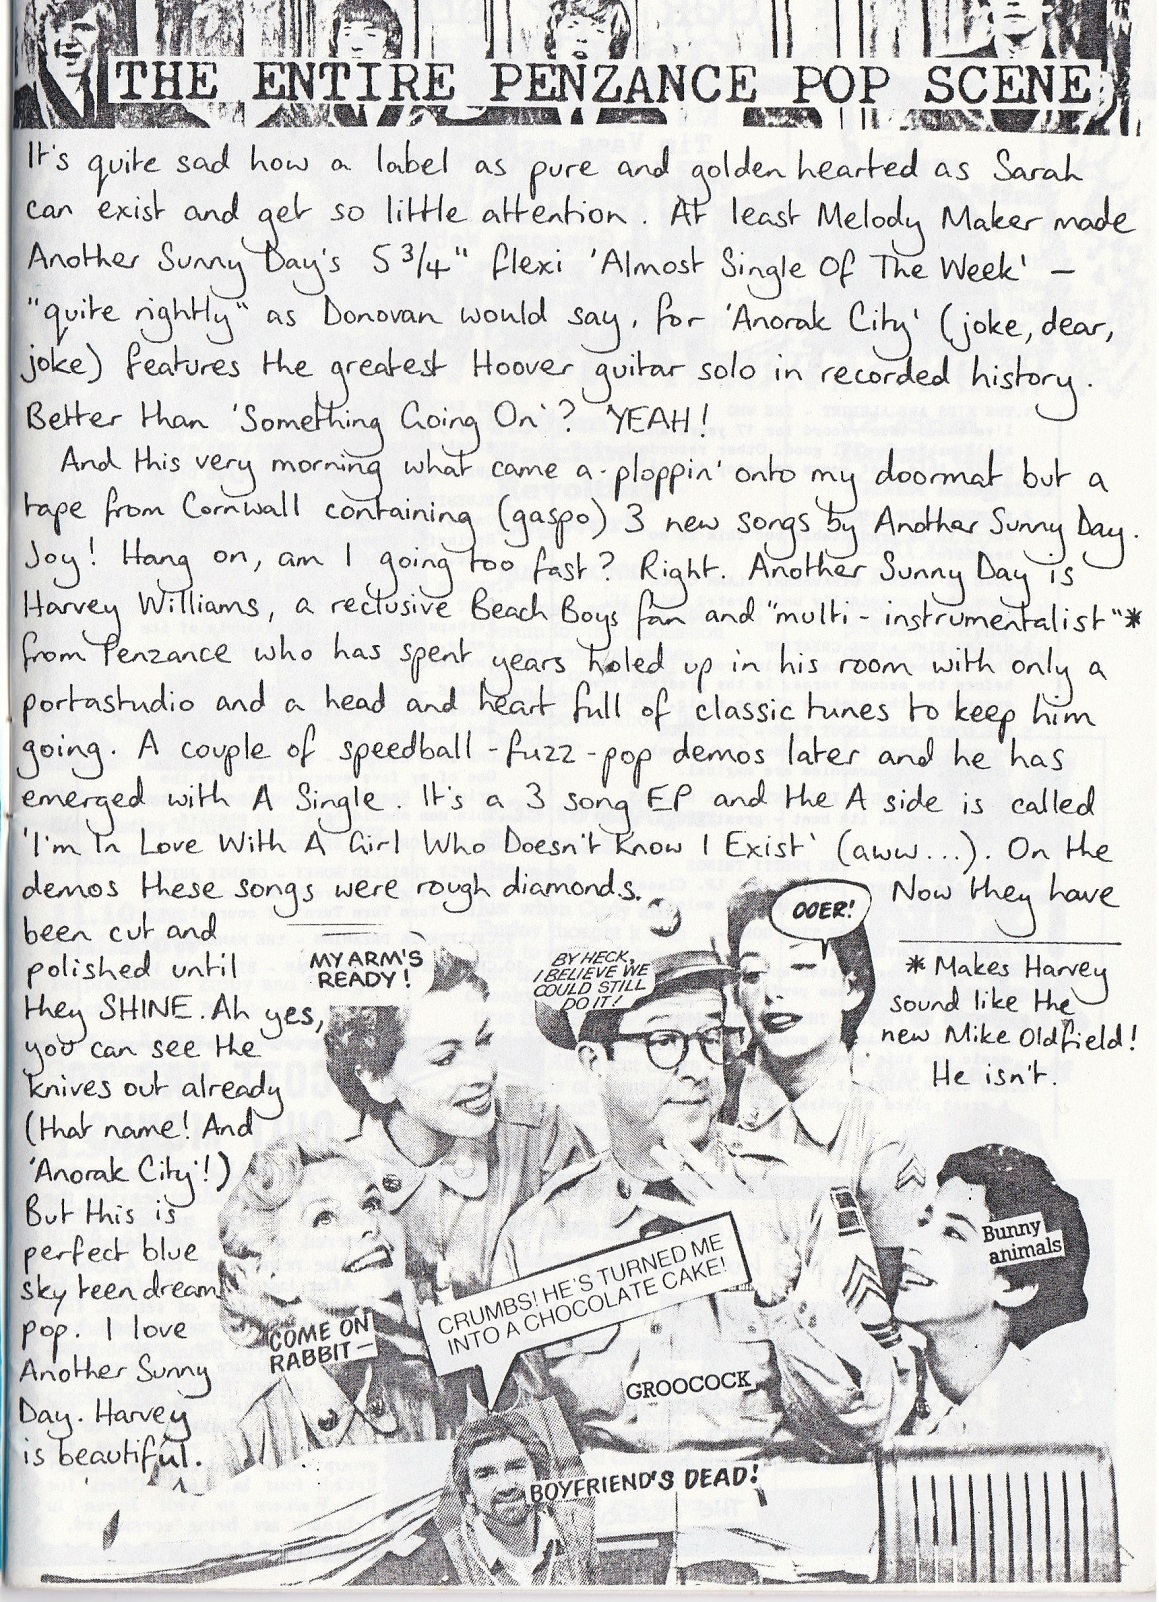 THE ENTIRE PENZANCE POP SCENE
It's quite sad how a label as pure and golden hearted as Sarah
can exist and get so little attention. At least Melody Maker made
Another Sunny Day's 5 3/4" flexi 'Almost Single Of The Week' –
"quite rightly" as Donovan would say, for 'Anorak City' (joke, dear,
joke) features the greatest Hoover guitar solo in recorded history.
Better than 'Something Going On'? YEAH!
And this very morning what came a-ploppin' onto my doormat but a
tape from Cornwall containing (gaspo) 3 new songs by Another Sunny Day.
Joy! Hang on, am I going too fast? Right. Another Sunny Day is
Harvey Williams, a reclusive Beach Boys fan and "multi-instrumentalist"*
from Penzance who has spent years holed up in his room with only a
portastudio and a head and heart full of classic tunes to keep him
going. A couple of speedball-fuzz-pop demos later and he has
emerged with A Single. It's a 3 song EP and the A side is called
'I'm In Love With A Girl Who Doesn't Know I Exist' (aww...). On the
demos these songs were rough diamonds. Now they have
been cut and
polished until
they SHINE. Ah yes,
you can see the
knives out already
(that name! And
'Anorak City'!)
But this is
perfect blue
sky teen dream
pop. I love
Another Sunny
Day. Harvey
is beautiful.
* Makes Harvey
sound like the
new Mike Oldfield!
He isn't.
MY ARM'S
READY!
BY HECK,
I BELIEVE WE
COULD STILL
DO IT!
OOER!
Bunny
animals
CRUMBS! HE'S TURNED ME
INTO A CHOCOLATE CAKE!
COME ON
RABBIT—
GROOCOCK
BOYFRIEND'S DEAD!